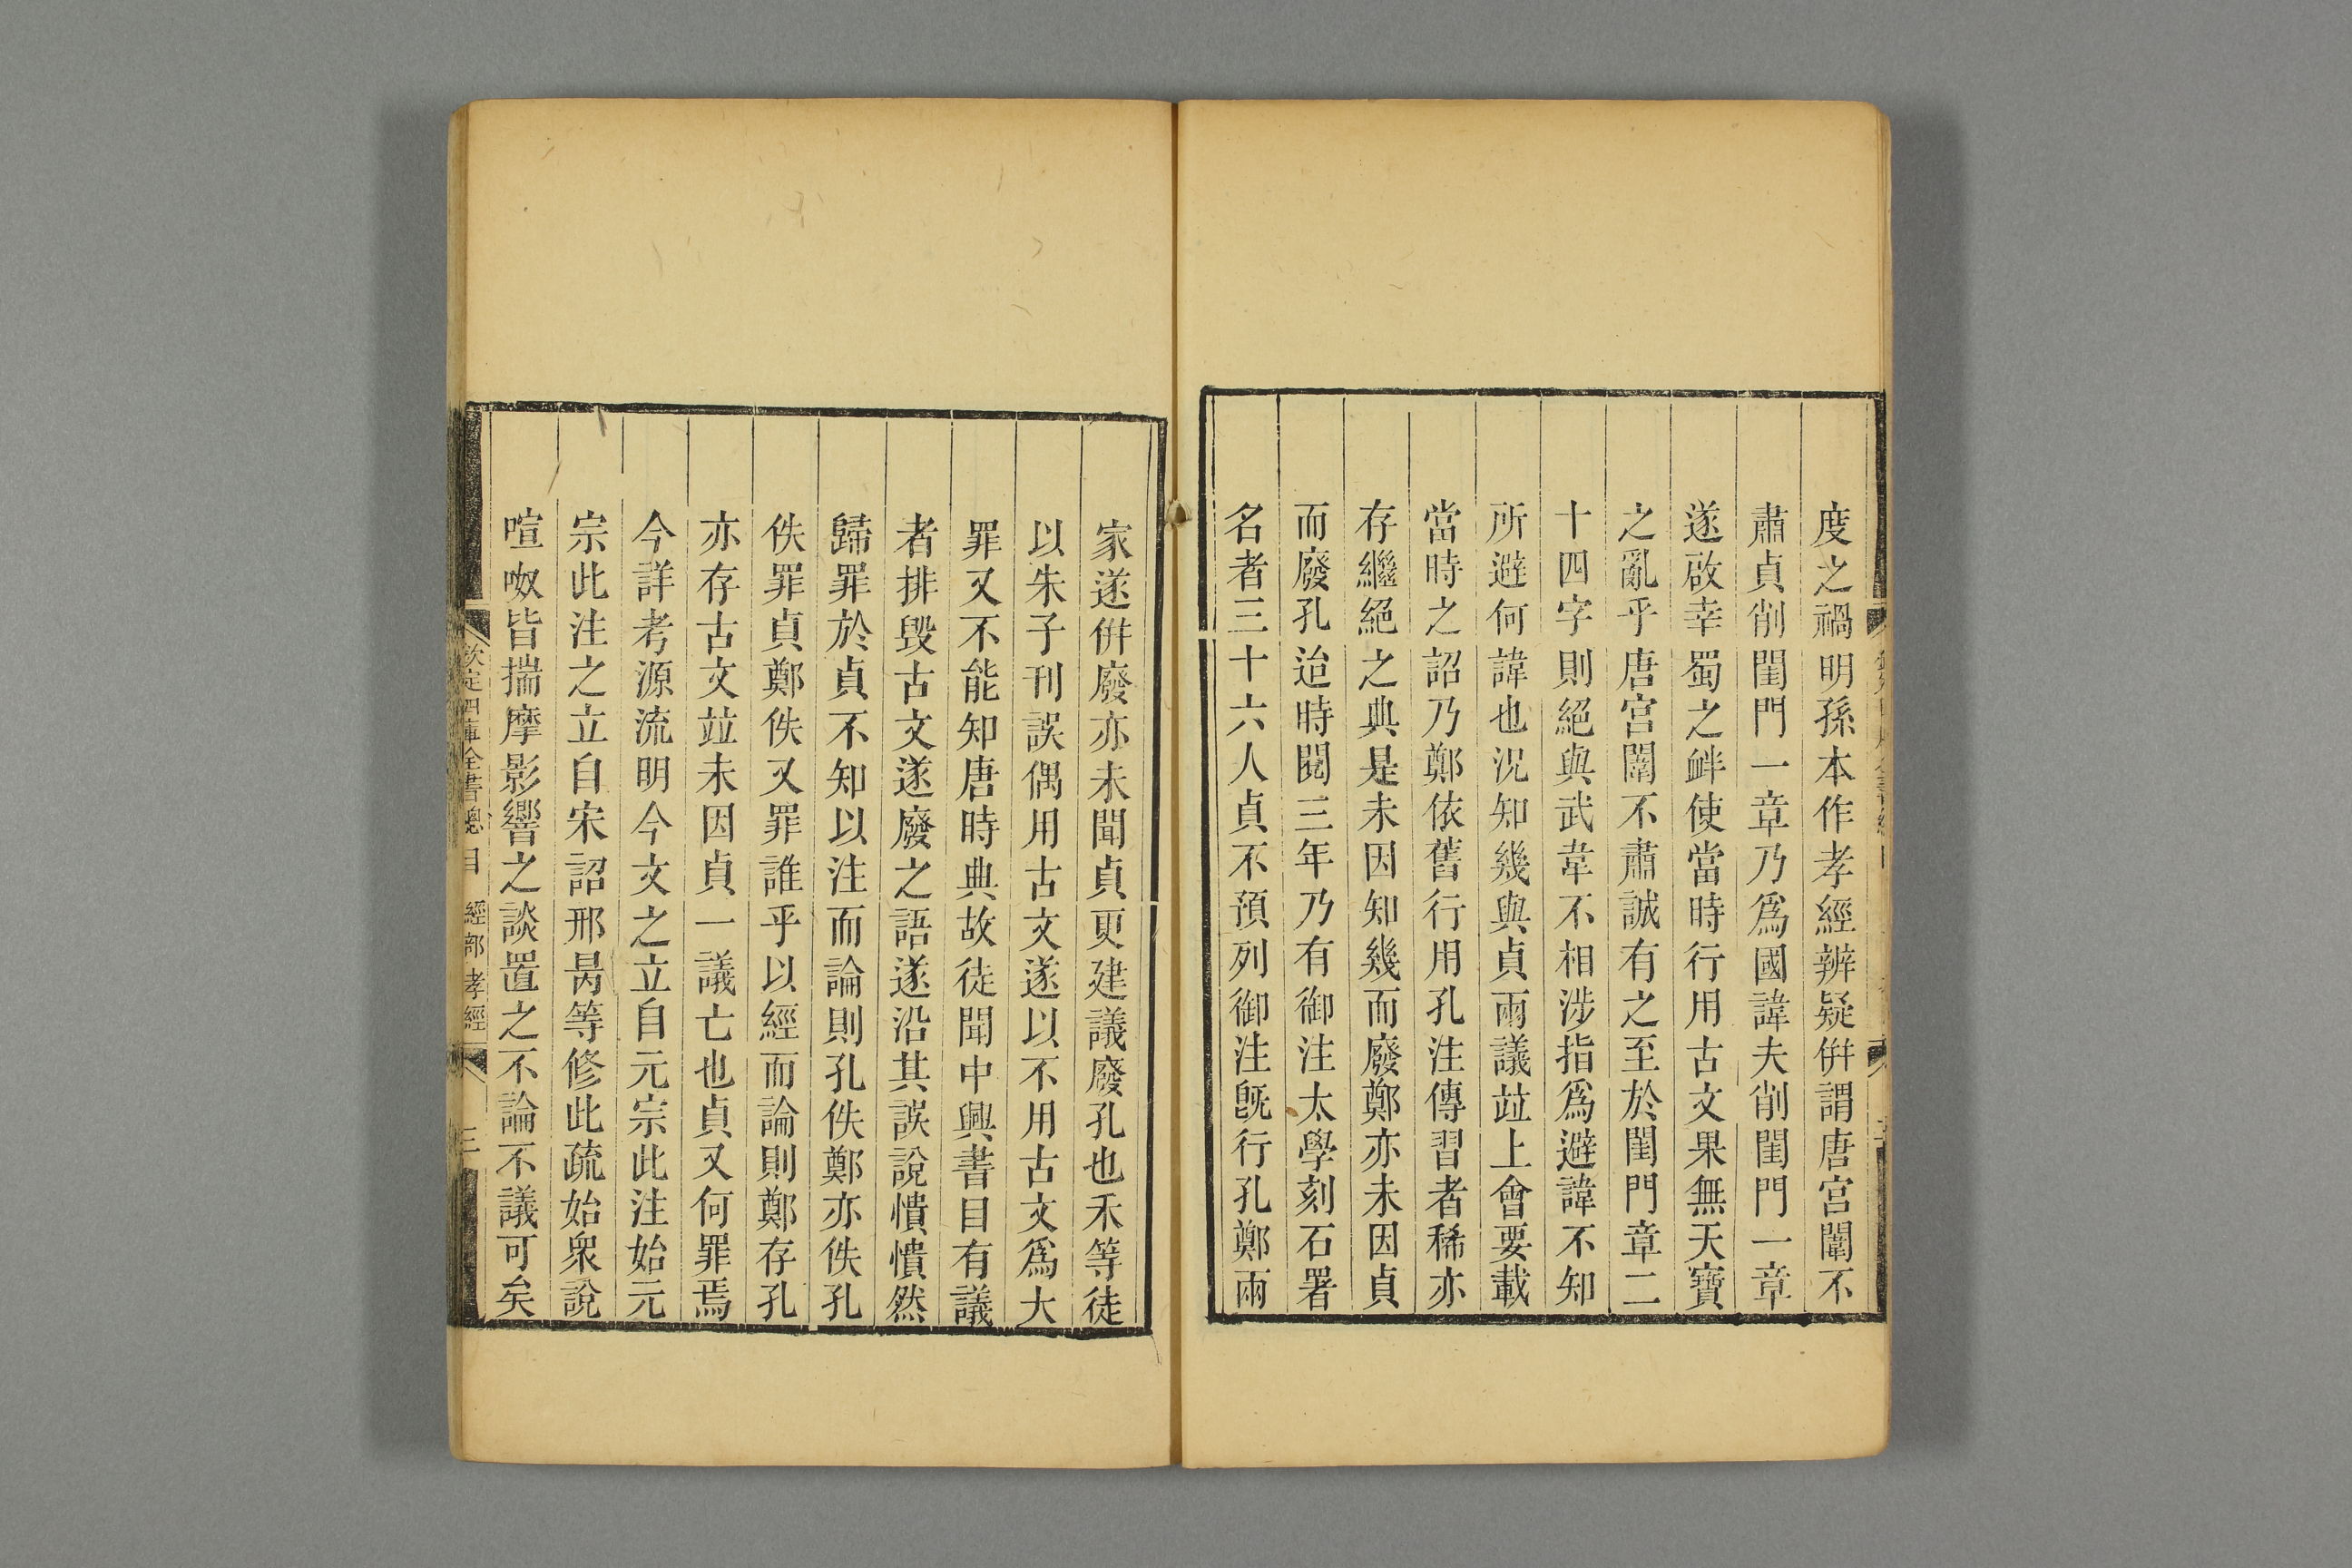 度之禍明孫本作孝經辨疑併謂唐宮闈不
肅貞削閨門一章乃爲國諱夫削閨門一章
遂啟幸蜀之衅使當時行用古文果無天寶
之亂乎唐宮闈不肅誠有之至於閨門章二
十四字則絕與武韋不相涉指爲避諱不知
所避何諱也況知幾與貞兩議竝上會要載
當時之詔乃鄭依舊行用孔注傳習者稀亦
存繼絕之典是未因知幾而廢鄭亦未因貞
而廢孔迨時閱三年乃有御注太學刻石署
名者三十六人貞不預列御注旣行孔鄭兩
家遂併廢亦未聞貞更建議廢孔也禾等徒
以朱子刊誤偶用古文遂以不用古文爲大
罪又不能知唐時典故徒聞中興書目有議
者排毀古文遂廢之語遂沿其誤說憒憒然
歸罪於貞不知以注而論則孔佚鄭亦佚孔
佚罪貞鄭佚又罪誰乎以經而論則鄭存孔
亦存古文竝未因貞一議亡也貞又何罪焉
今詳考源流明今文之立自元宗此注始元
宗此注之立自宋詔邢昺等修此疏始衆說
喧呶皆揣摩影響之談置之不論不議可矣
欽定四庫全書總目 經部 孝經 三